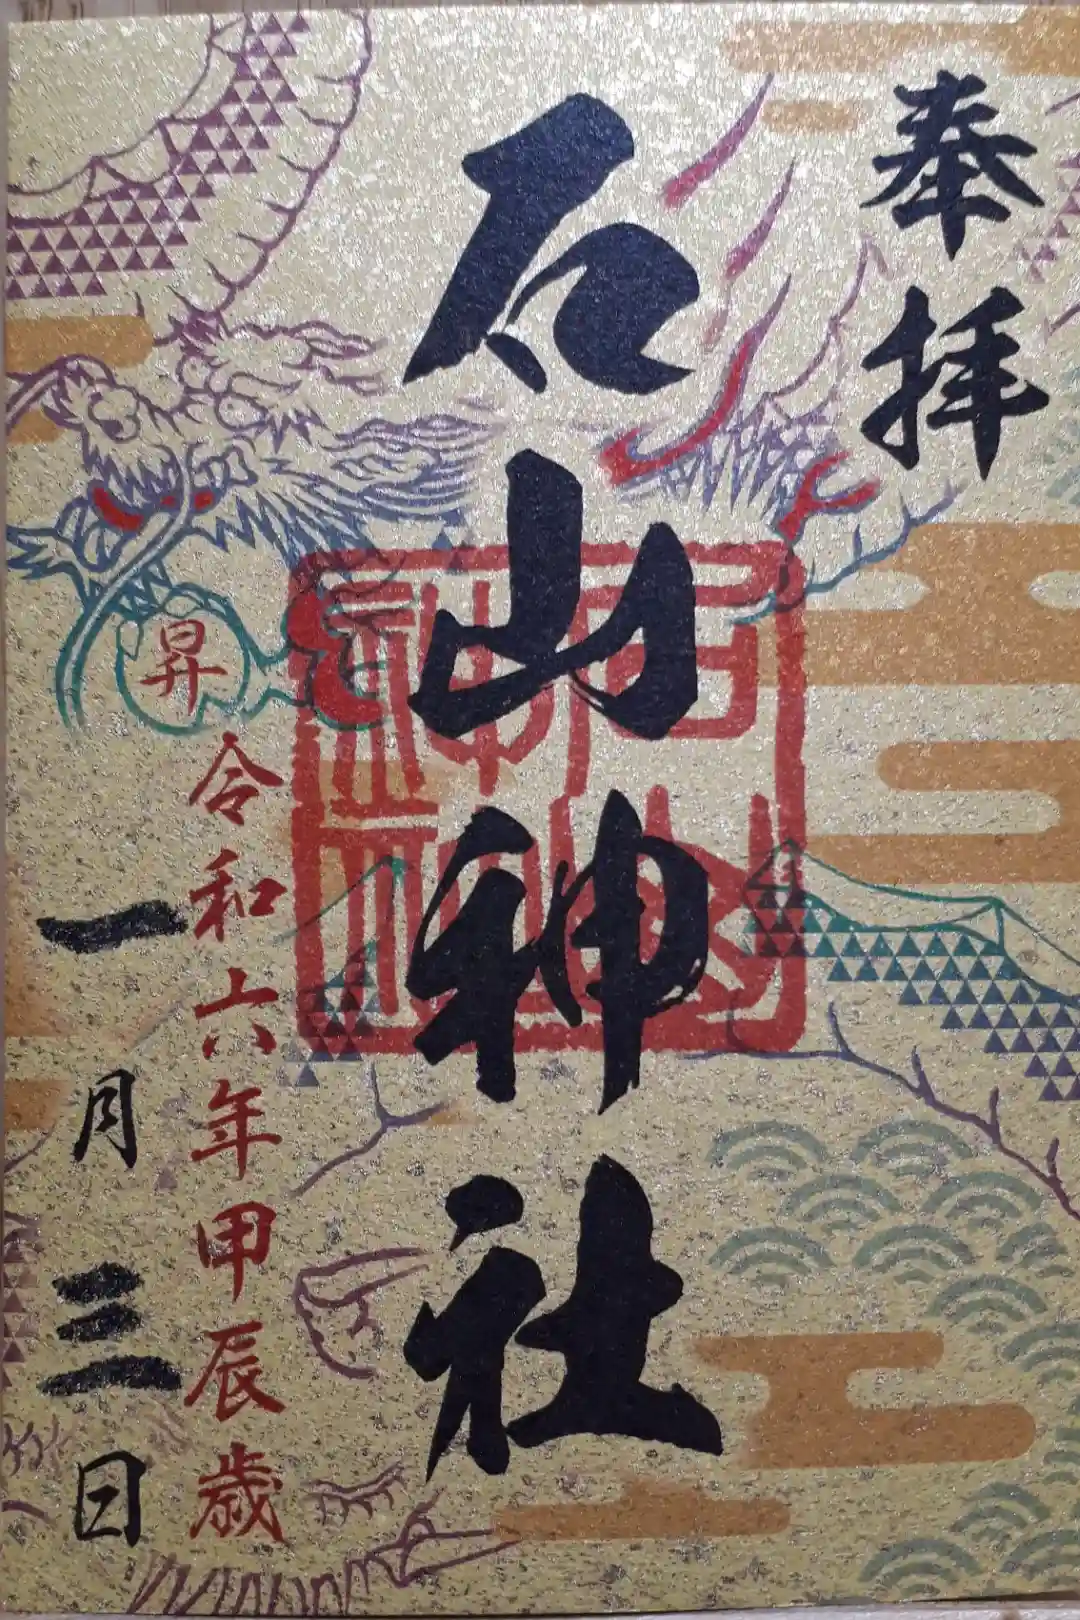 奉拝
石山神社
昇
令和六年甲辰歳
一月三日